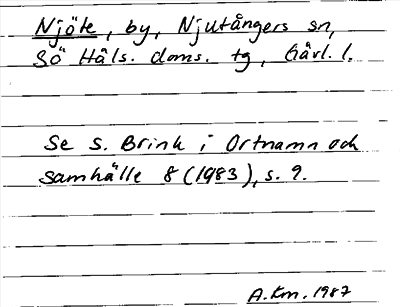 Njöte, by, Njutångers sn,
Sö Häls. doms. tg, Gävl. l.
Se S. Brink i Ortnamn och
samhälle 8 (1983), s. 9.
A.Km. 1987